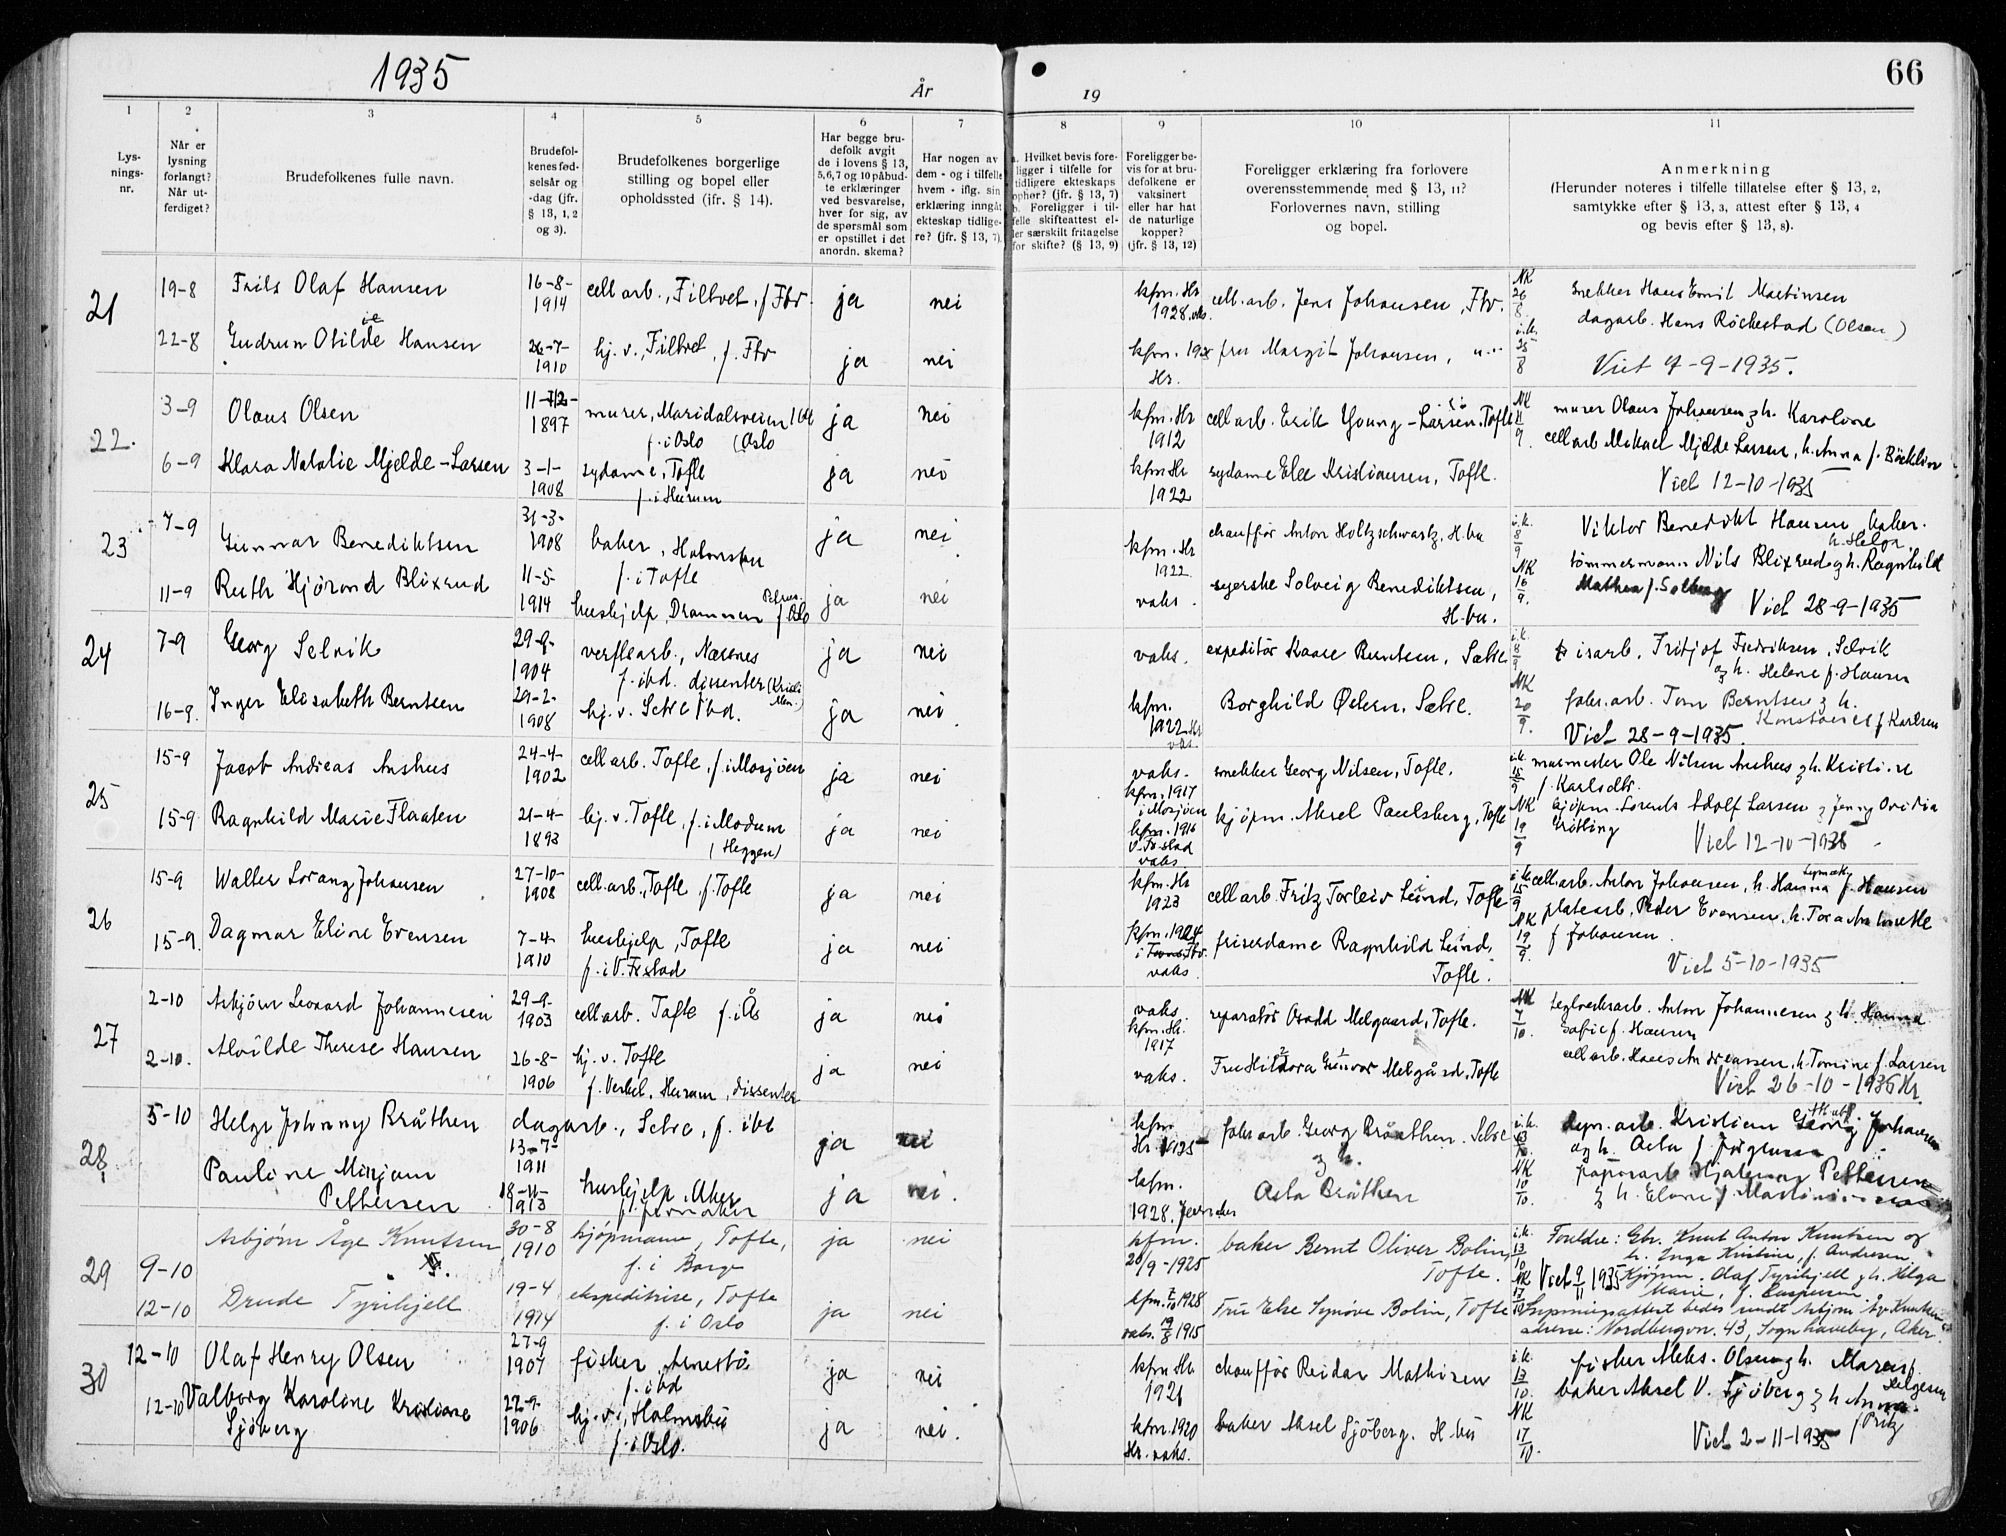 1935
År
19
66
1
2
3
4
5
6
7
8
9
10
11
Lys-
nings-
nr.
Når er
lysning
forlangt?
Når ut-
ferdiget?
Brudefolkenes fulle navn.
Brudefol-
kenes fød-
selsår og
-dag (jfr.
§ 13, 1, 2
og 3).
Brudefolkenes borgerlige
stilling og bopel eller
opholdssted (jfr. § 14).
Har begge bru-
defolk avgit
de i lovens § 13,
5,6,7 og 10 påbud-
te erklæringer
ved besvarelse,
hver for sig, av
de spørsmål som
er opstillet i det
anordn. skema?
Har nogen av
dem - og i tilfelle
hvem - iflg. sin
erklæring inngåt
ekteskap tidlige-
re? (jfr. § 13, 7).
a. Hvilket bevis fore-
ligger i tilfelle for
tidligere ekteskaps
ophør? (jfr. § 13, 7)
b. Foreligger i til-
felle skifteattest el-
ler særskilt fritagelse
for skifte? (§ 13, 9)
Foreligger be-
vis for at bru-
defolkene er
vaksinert
eller har hat
de naturlige
kopper?
(jfr. § 13, 12)
Foreligger erklæring fra forlovere
overensstemmende med § 13, 11?
Forlovernes navn, stilling
og bopel.
Anmerkning
(Herunder noteres i tilfelle tillatelse efter § 13, 2,
samtykke efter § 13, 3, attest efter § 13, 4
og bevis efter § 13, 8).
21
19-8 Frits Olaf Hansen 16-8-1914 cell arb., Filtvet, f Ftv. ja nei kfm. Hr 1928. vks. cell. arb. Jens Johansen, Ftv. NK 26/8 snekker Hans Emil Martinsen
22-8 Gudrun Otilde Hansen 26-7-1910 hj. v., Filtvet, f. Ftv ja nei kfm. Hr. fru Margit Johansen, i.k. 25/8 dagarb. Hans Röckestad (Olsen)
Viet 7-9-1935.
22.
3-9 Olaus Olsen 11-12-1897 murer, Maridalsveien Oslo f. i Oslo ja nei kfm. Hr 1912 cell arb. Erik Young-Larsen, Tofte NK 11/9. murer Olaus Johansen & h. Karoline
6-9 Klara Natalie Mjelde-Larsen 3-1-1908 sydame, Tofte f. i Hurum ja nei kfm Hr 1922 sydame Else Kristiansen, Tofte. cell arb Mikael Mjelde Larsen, h. Anna f. Böcklin
Viet 12-10-1935
23
7-9 Gunnar Benediktsen 31-3-1908 baker, Holmsbu f. i Tofte ja nei kfm. Hr 1922 chaufför Anton Holtzschwartz, H.bu i.k. 8/9 Viktor Benedikt Hansen, baker. h. Helga
11-9 Ruth Hjördis Blixrud 11-5-1914 hushjelp, Drammen f Oslo ja nei vaks. syerske Solveig Benediktsen, H.bu. NK 16/9. tömmermann Nils Blixrud & h. Ragnhild Mathea f. Solberg
Viet 28-9-1935
24
7-9 Georg Selvik 29-9-1904 verftsarb., Næsnes f. ibd. dissenter ja nei vaks. expeditör Kaare Berntsen, Sætre i.k. 8/9 isarb. Fritjof Fredriksen, Selvik & h. Helene f. Hansen
16-9. Inger Elisabeth Berntsen 29-2-1908 hj. v. Sætre ibd. ja nei kfm. 1922 Hr vaks Borghild Olsen, Sætre. NK 20/9. fabr. arb. Tom Berntsen & h. f Karlsen
Viet 28-9-1935
25
15-9 Jacob Andreas Aashus 24-4-1902 cell arb. Tofte, f. i Mosjöen ja nei vaks. kfm. 1917 i Mosjöen snekker Georg Nilsen, Tofte. i.k. 15/9 murmester Ole Nilsen Aashus & h. Kristine f. Karlsdtr.
15-9 Ragnhild Marie Flaaten 21-4-1893 hj. v. Tofte, f. i Modum (Heggen) ja nei kfm. 1916 V. Fr.stad vaks kjöpm. Aksel Paulsberg, Tofte NK 19/9 kjöpm. Adolf Larsen & Jenny Ovidia
Viet 12-10-1935
26
15-9 Walter Lorang Johansen 27-10-1908 cell. arb., Tofte, f. Tofte ja nei kfm. Hr 1923 cell arb. Fritz Torleiv Lund, Tofte i.k. 15/9 cell. arb. Anton Johansen, h. Hanna f. Hansen
15-9. Dagmar Eline Evensen 7-4-1910 hushjelp, Tofte f. i V. Fr.stad ja nei kfm. 1924 vaks friserdame Ragnhild Lund, Tofte. NK 19/9. platearb. Peder Evensen, h. Tora f Johansen
Viet 5-10-1935
27
2-10 Asbjörn Leonard Johannesen 29-9-1903 cell arb. Tofte f. i Ås ja nei vaks. kfm. Hr. 1917 reparatör Melgaard, Tofte. NK 7/10. teglverksarb. Anton Johannesen & h. Hanna Sofie f. Hansen
2-10. Alvilde Therese Hansen 26-8-1906 hj. v. Tofte f. Verket, Hurum, dissenter ja nei vaks. Fru Hildora Gunvor Melgård, Tofte cell arb. Hans Andreassen, h. Tomine f. Larsen
Viet 26-10-1935 Hr.
28
5-10 Helge Johnny Bråthen dagarb., Sætre, f. ibd 13-7-1911 ja nei kfm Hr 1925 fabr arb. Georg Bråthen. Sætre & h. Asta Bråthen i.k. dyn. arb. Kristian Georg Johansen og h. Asta f. Jörgensen
Pauline Mirjam Pettersen 18-11-1913 hushjelp, Aker ja nei. kfm. 1928. NK 10/10. papirarb Hjalmar Pettersen & h.
29
9-10 Asbjørn Åge Knutsen 30-8 1910 kjøpmann, Tofte, f. i Borge ja nei kfm. 20/9-1925 baker Bernt Oliver Bolin, Tofte. i.k. 13/10 Foreldre: Gbr. Knut Anton Knutsen og h. Inga Kristine, f. Andresen
12-10 Drude Tyrihjell 19-4 1914 ekspeditrise, Tofte f. i Oslo ja nei kfm. 7/10 1928 vaks. 19/8 1915 Fru Else Synøve Bolin, Tofte NK 17/10 Viet 9/11 1935 Kjøpm. Olaf Tyrihjell & h. Helga Marie, f. Caspersen
Lysningsattest bedes sendt Asbjørn Åge Knutsen
adresse: Nordbergvn. 43, Sogn haveby, Aker.
30
12-10 Olaf Henry Olsen 27-9 1907 fisker, f. ibd ja nei kfm Hr 1921 chaufför Reidar Mathisen i.k. 13/10. fisker Aleks. Olsen & h. Maren f. Helgesen
12-10 Valborg Karoline Kristiane Sjöberg 22-9-1906 hj. v., Holmsbu f. i Oslo. ja nei. kfm. 1920 Hr. vaks. baker Aksel Sjöberg. H.bu NK 17/10. baker Aksel V. Sjöberg & h Anna f Pritz
Viet 2-11-1935